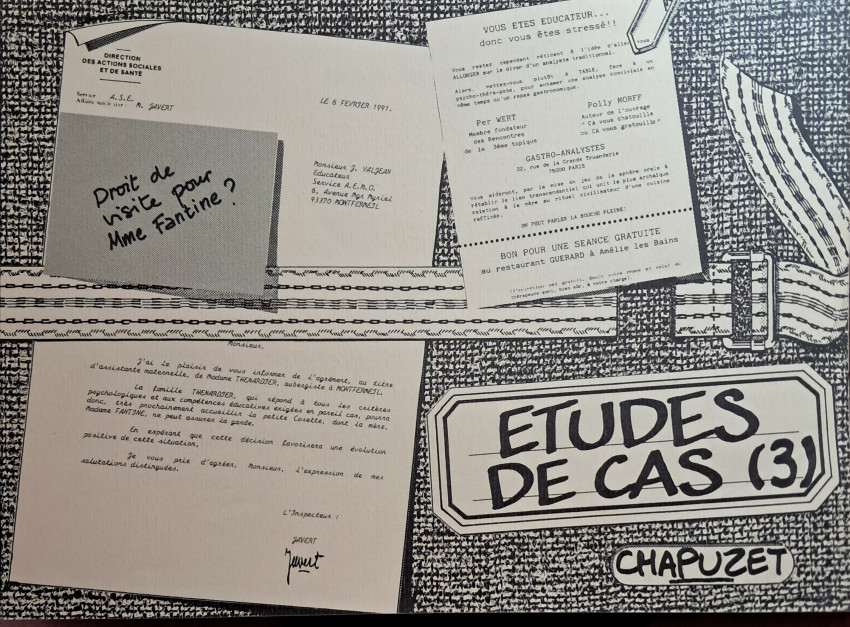 DIRECTION
DES ACTIONS SOCIALES
ET DE SANTÉ
Service : A.S.E.
Affaire suivie par : M. JAVERT
LE 6 FEVRIER 1991.
Droit de
visite pour
Mme Fantine ?
Monsieur J. VALJEAN
Educateur
Service A.E.M.O.
6, Avenue Mgr Myriel
93370 MONTFERMEIL
Monsieur,
J'ai le plaisir de vous informer de l'agrément, au titre
d'assistante maternelle, de Madame THENARDIER, aubergiste à MONTFERMEIL.
La famille THENARDIER, qui répond à tous les critères
psychologiques et aux compétences éducatives exigées en pareil cas, pourra
donc, très prochainement accueillir la petite Cosette, dont la mère,
Madame FANTINE, ne peut assurer la garde.
En espérant que cette décision favorisera une évolution
positive de cette situation,
Je vous prie d'agréer, Monsieur, l'expression de mes
salutations distinguées.
L'Inspecteur :
JAVERT
Javert
VOUS ETES EDUCATEUR...
donc vous êtes stressé!!
Vous restez cependant réticent à l'idée d'aller vous
ALLONGER sur le divan d'un analyste traditionnel.
Alors, mettez-vous plutôt A TABLE, face à un
psycho-théra-pote, pour entamer une analyse conviviale en
même temps qu'un repas gastronomique.
Per WERT
Membre fondateur
des Rencontres
de la 3ème topique
Polly MORFF
Auteur de l'ouvrage
" CA vous chatouille
ou CA vous gratouille"
GASTRO-ANALYSTES
22, rue de la Grande Truanderie
75000 PARIS
vous aideront, par la mise en jeu de la sphère orale à
rétablir le lien transcendantiel qui unit la plus archaïque
relation à la mère au rituel civilisateur d'une cuisine
raffinée.
ON PEUT PARLER LA BOUCHE PLEINE!
BON POUR UNE SEANCE GRATUITE
au restaurant GUERARD à Amélie les Bains
thérapeute sont, bien sûr, à votre charge)
ETUDES
DE CAS (3)
CHAPUZET